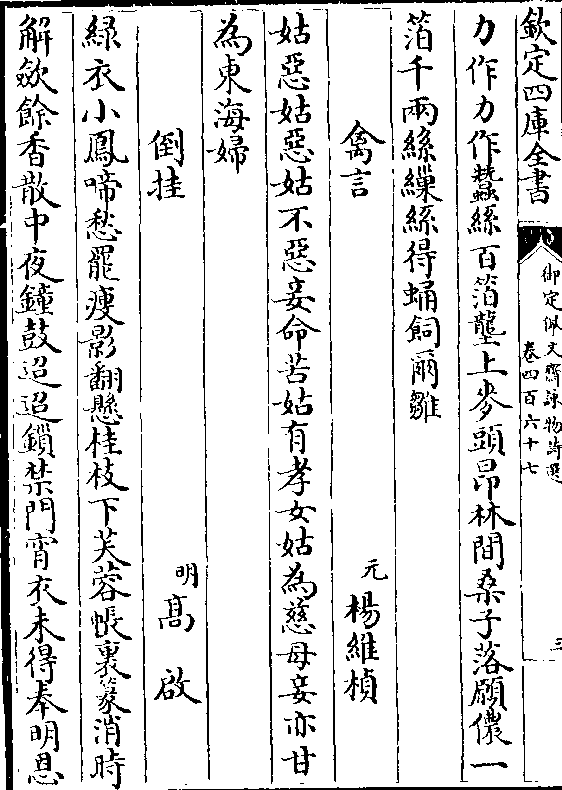 欽定四庫全書
御定佩文齋詠物詩選
卷四百六十七
三
力作力作蠶絲百箔壟上麥頭昂林間桑子落願儂一
箔千兩絲繅絲得蛹飼爾雛
禽言
元楊維楨
姑惡姑惡姑不惡妾命苦姑有孝女姑為慈母妾亦甘
為東海婦
倒挂
明高啟
綠衣小鳳啼愁罷瘦影翻懸桂枝下芙蓉帳裏篆消時
解斂餘香散中夜鐘鼓迢迢鎖禁門宵衣未得奉明恩